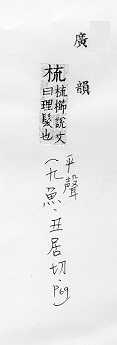 廣韻
梳 梳櫛說文
曰理髮也
(平聲
九魚·丑居切·P69